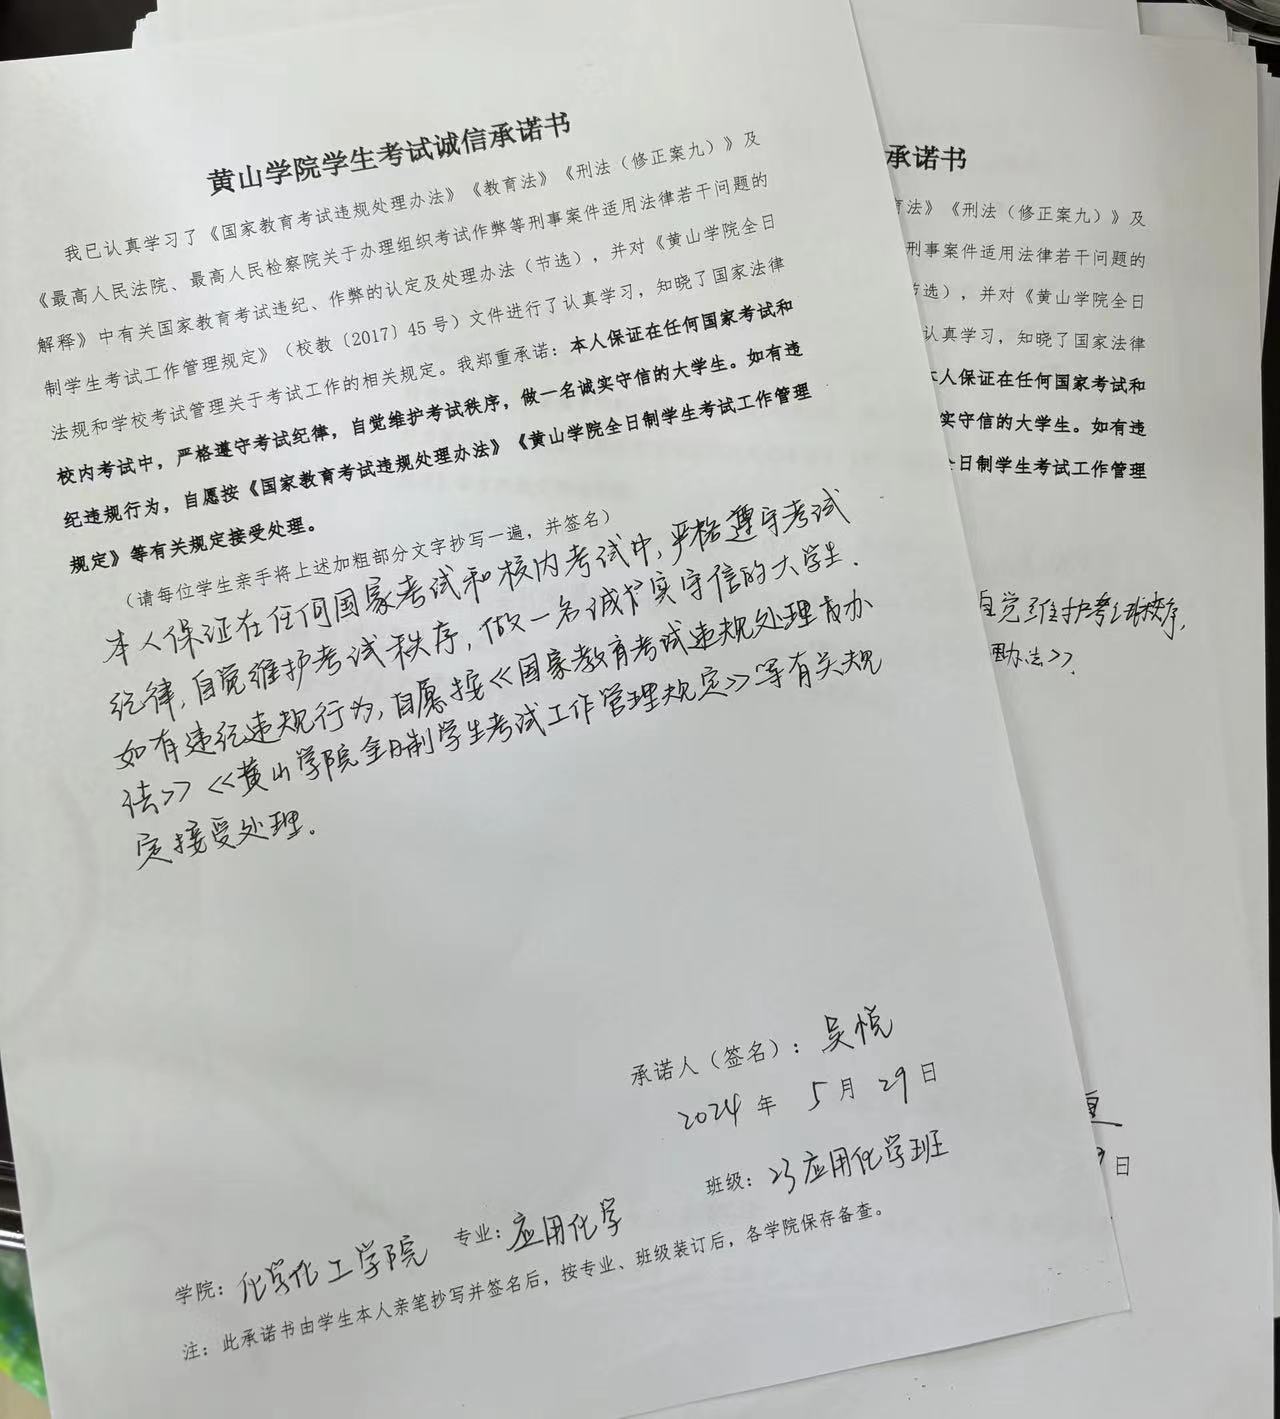 黄山学院学生考试诚信承诺书
我已认真学习了《国家教育考试违规处理办法》《教育法》《刑法（修正案九）》及
《最高人民法院、最高人民检察院关于办理组织考试作弊等刑事案件适用法律若干问题的
解释》中有关国家教育考试违纪、作弊的认定及处理办法（节选），并对《黄山学院全日
制学生考试工作管理规定》（校教〔2017〕45 号）文件进行了认真学习，知晓了国家法律
法规和学校考试管理关于考试工作的相关规定。我郑重承诺：本人保证在任何国家考试和
校内考试中，严格遵守考试纪律，自觉维护考试秩序，做一名诚实守信的大学生。如有违
纪违规行为，自愿按《国家教育考试违规处理办法》《黄山学院全日制学生考试工作管理
规定》等有关规定接受处理。
（请每位学生亲手将上述加粗部分文字抄写一遍，并签名）
本人保证在任何国家考试和校内考试中，严格遵守考试
纪律，自觉维护考试秩序，做一名诚实守信的大学生．
如有违纪违规行为，自愿按《国家教育考试违规处理办
法》《黄山学院全日制学生考试工作管理规定》等有关规
定接受处理。
承诺人（签名）：吴悦
2024 年 5 月 29 日
班级：23应用化学班
学院：化学化工学院 专业：应用化学
注：此承诺书由学生本人亲笔抄写并签名后，按专业、班级装订后，各学院保存备查。
承诺书
育法》《刑法（修正案九）》及
刑事案件适用法律若干问题的
节选），并对《黄山学院全日
认真学习，知晓了国家法律
本人保证在任何国家考试和
实守信的大学生。如有违
全日制学生考试工作管理
自觉维护考试秩序，
办法》．
日